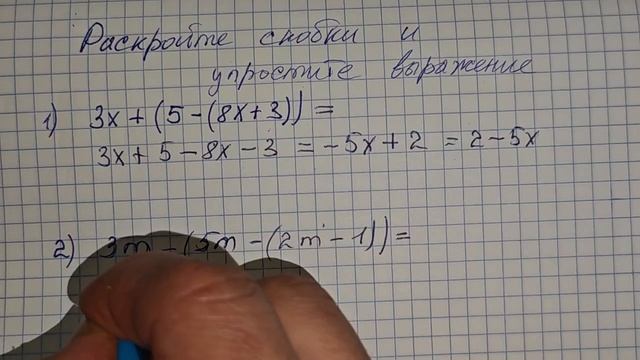 Раскройте скобки и
упростите выражение
1) 3x + (5 - (8x + 3)) =
3x + 5 - 8x - 3 = -5x + 2 = 2 - 5x
2) 3m - (5m - (2m - 1)) =